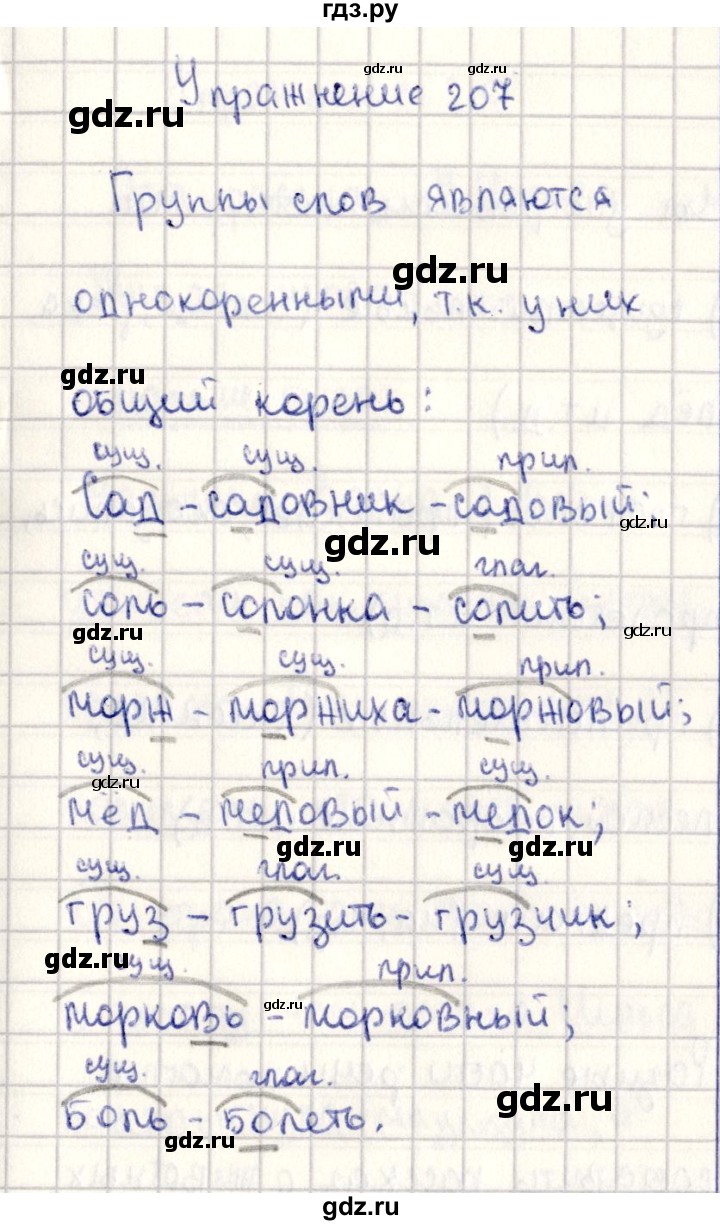 гдз.ру
gdz.ru
Упражнение 207
gdz.ru
Группы слов являются
gdz.ru
однокоренными, т.к. у них
gdz.ru
общий корень:
сущ. сущ. прил.
Сад - садовник - садовый;
gdz.ru
gdz.ru
сущ. сущ. глаг.
соль - солонка - солить;
gdz.ru gdz.ru
сущ. сущ. прил.
морж - моржиха - моржовый;
gdz.ru
сущ. прил. сущ.
gdz.ru
мёд - медовый - медок;
gdz.ru gdz.ru
сущ. глаг. сущ.
груз - грузить - грузчик;
gdz.ru
сущ. прил.
gdz.ru
морковь - морковный;
сущ. глаг.
gdz.ru
Боль - болеть.
gdz.ru
gdz.ru